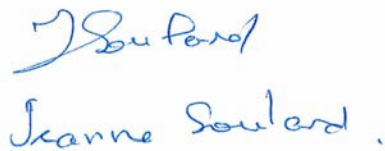 J Soulard
Jeanne Soulard.